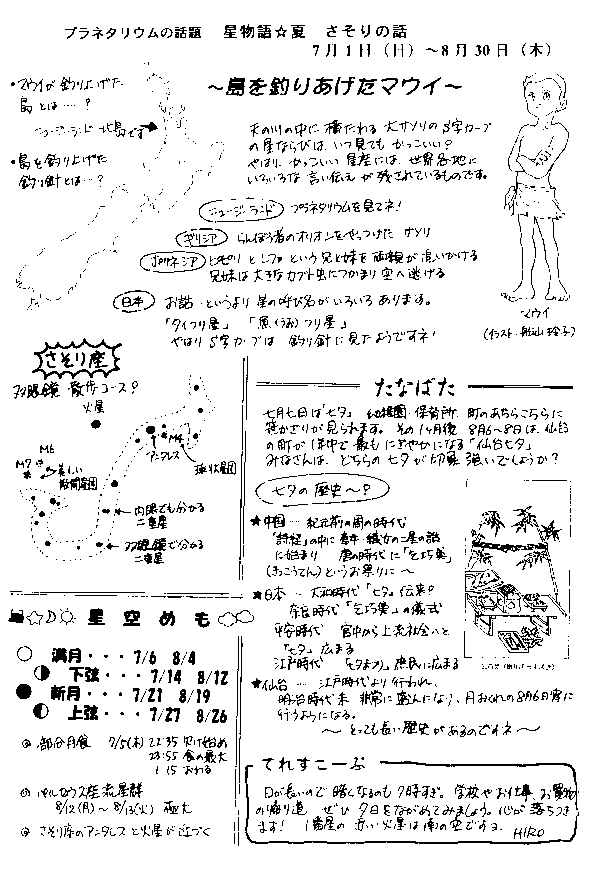 プラネタリウムの話題　星物語☆夏　さそりの話
7月1日（日）～8月30日（木）
～島を釣りあげたマウイ～
・マウイが釣り上げた
島とは…？
ニュージーランド北島です
・島を釣り上げた
釣り針とは…？
天の川の中に横たわる大サソリのS字カーブ
の星ならびは、いつ見てもかっこいい?
やはり、かっこいい星座には、世界各地に
いろいろな言い伝えが残されているものです。
ニュージーランド　プラネタリウムを見てネ!
ギリシア　らんぼう者のオリオンをやっつけたサソリ
ポリネシア　という兄と妹を両親が追いかける
兄妹は大きなカブト虫につかまり空へ逃げる
日本　お話というより星の呼び名がいろいろあります。
「タイつり星」「魚(うお)つり星」
やはりS字カーブは釣り針に見たようですネ!
マウイ
さそり座
双眼鏡散歩コース?
火星
M6
M7
M4
アンタレス
球状星団
美しい
散開星団
肉眼でも分かる
二重星
双眼鏡で分かる
二重星
たなばた
七月七日は「七夕」幼稚園、保育所、町のあちらこちらに
笹かざりが見られます。その1ヶ月後8月6～8日は、仙台
の町が1年中で最もにぎやかになる「仙台七夕」
みなさんは、どちらの七夕が印象強いでしょうか?
七夕の歴史～?
★中国…紀元前の周の時代
「詩経」の中に牽牛・織女の二星の話
に始まり　唐の時代に「乞巧奠」
(きっこうてん)というお祭りに～
★日本…大和時代「七夕の伝来?
奈良時代「乞巧奠」の儀式
平安時代　宮中から上流社会へと
「七夕」広まる
江戸時代「七夕まつり」庶民に広まる
★仙台…江戸時代より行われ、
明治時代末 非常に盛んになり、月おくれの8月6日宵に
行うようになる。
～とっても長い歴史があるのですネ～
星空めも
満月・・・7/6　8/4
下弦・・・7/14　8/12
新月・・・7/21　8/19
上弦・・・7/27　8/26
部分月食　7/5(木) 22:35 欠け始め
23:55 食の最大
1:15 おわる
ペルセウス座流星群
8/12(月)～8/13(火) 極大
さそり座のアンタレスと火星が近づく
てれすこーぷ
日が長いので暗くなるのも7時すぎ。学校やお仕事、お買物
の帰り道 ぜひ夕日をながめてみましょう。心が落ちつき
ます!　1番星の赤い火星は南の空ですヨ。
HIRO